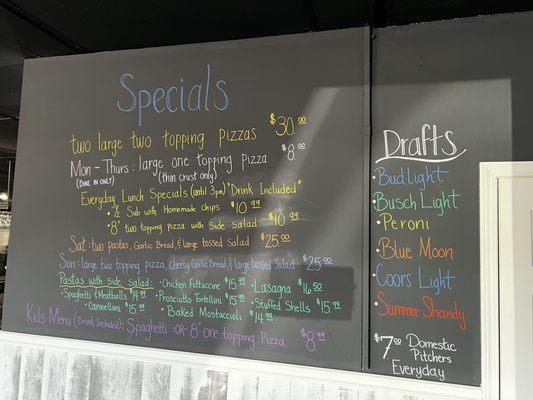 Specials
two large two topping pizzas $30.00
Mon - Thurs: large one topping pizza $8.00
(DINE IN ONLY) (thin crust only)
Everyday Lunch Specials (until 3pm) *Drink Included*
• 1/2 Sub with Homemade chips $10.99
• 8" two topping pizza with Side salad $10.99
Sat: two pastas, Garlic Bread, & large tossed Salad $25.00
Sun: large two topping pizza, Cheesy Garlic Bread, & large tossed Salad $25.00
Pastas with side salad:
• Spaghetti & Meatballs $14.99
• Cannelloni $15.99
• Chicken Fettuccine $15.99
• Prosciutto Tortellini $15.99
• Baked Mostaccioli $14.99
• Lasagna $16.50
• Stuffed Shells $15.99
Kids Menu (Drink Included): Spaghetti -OR- 8" one topping Pizza $8.99
Drafts
• Bud Light
• Busch Light
• Peroni
• Blue Moon
• Coors Light
• Summer Shandy
$7.00 Domestic
Pitchers
Everyday